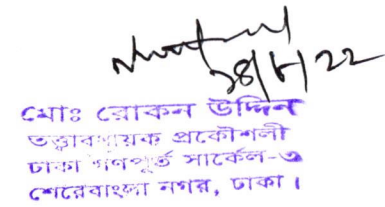 মোঃ রোকন উদ্দিন
তত্ত্বাবধায়ক প্রকৌশলী
ঢাকা গণপূর্ত সার্কেল-৩
শেরেবাংলা নগর, ঢাকা।